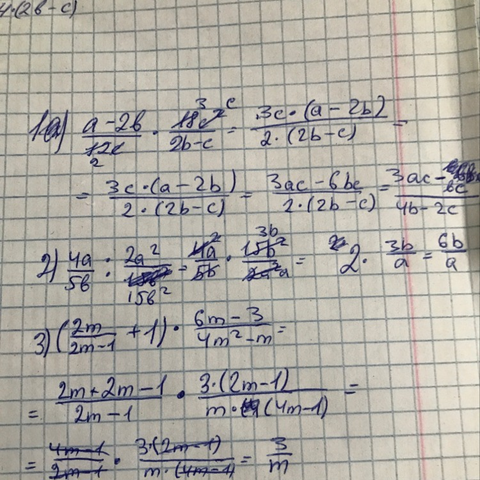 4·(2b-c)
1a) \frac{a-2b}{12c} · \frac{18c^2}{2b-c} = \frac{3c·(a-2b)}{2·(2b-c)} =
= \frac{3c·(a-2b)}{2·(2b-c)} = \frac{3ac-6bc}{2·(2b-c)} = \frac{3ac-6bc}{4b-2c}
2) \frac{4a}{5b} : \frac{2a^2}{15b^2} = \frac{4a}{5b} · \frac{15b^2}{2a^2} = 2 · \frac{3b}{a} = \frac{6b}{a}
3) (\frac{2m}{2m-1} + 1) · \frac{6m-3}{4m^2-m} =
= \frac{2m+2m-1}{2m-1} · \frac{3·(2m-1)}{m·(4m-1)} =
= \frac{4m-1}{2m-1} · \frac{3·(2m-1)}{m·(4m-1)} = \frac{3}{m}